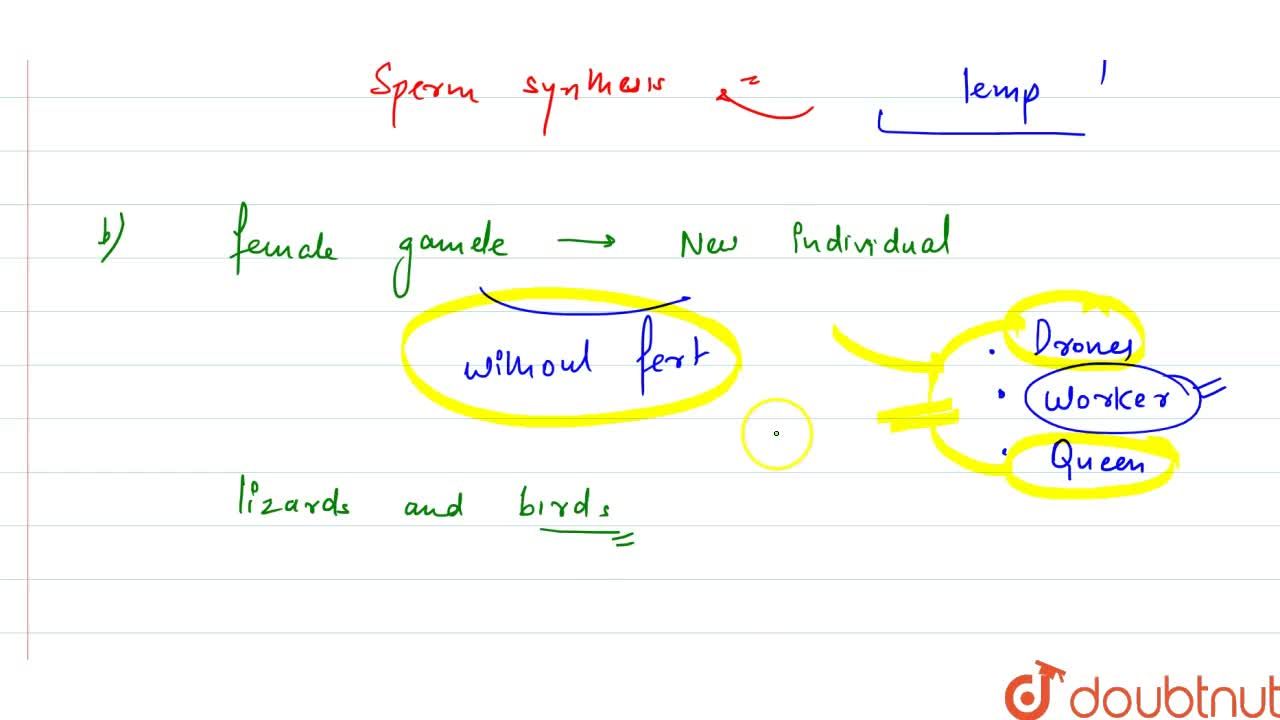 Sperm synthesis temp
b) female gamete → New individual
without fert
• Drones
• Worker
• Queen
lizards and birds
doubtnut